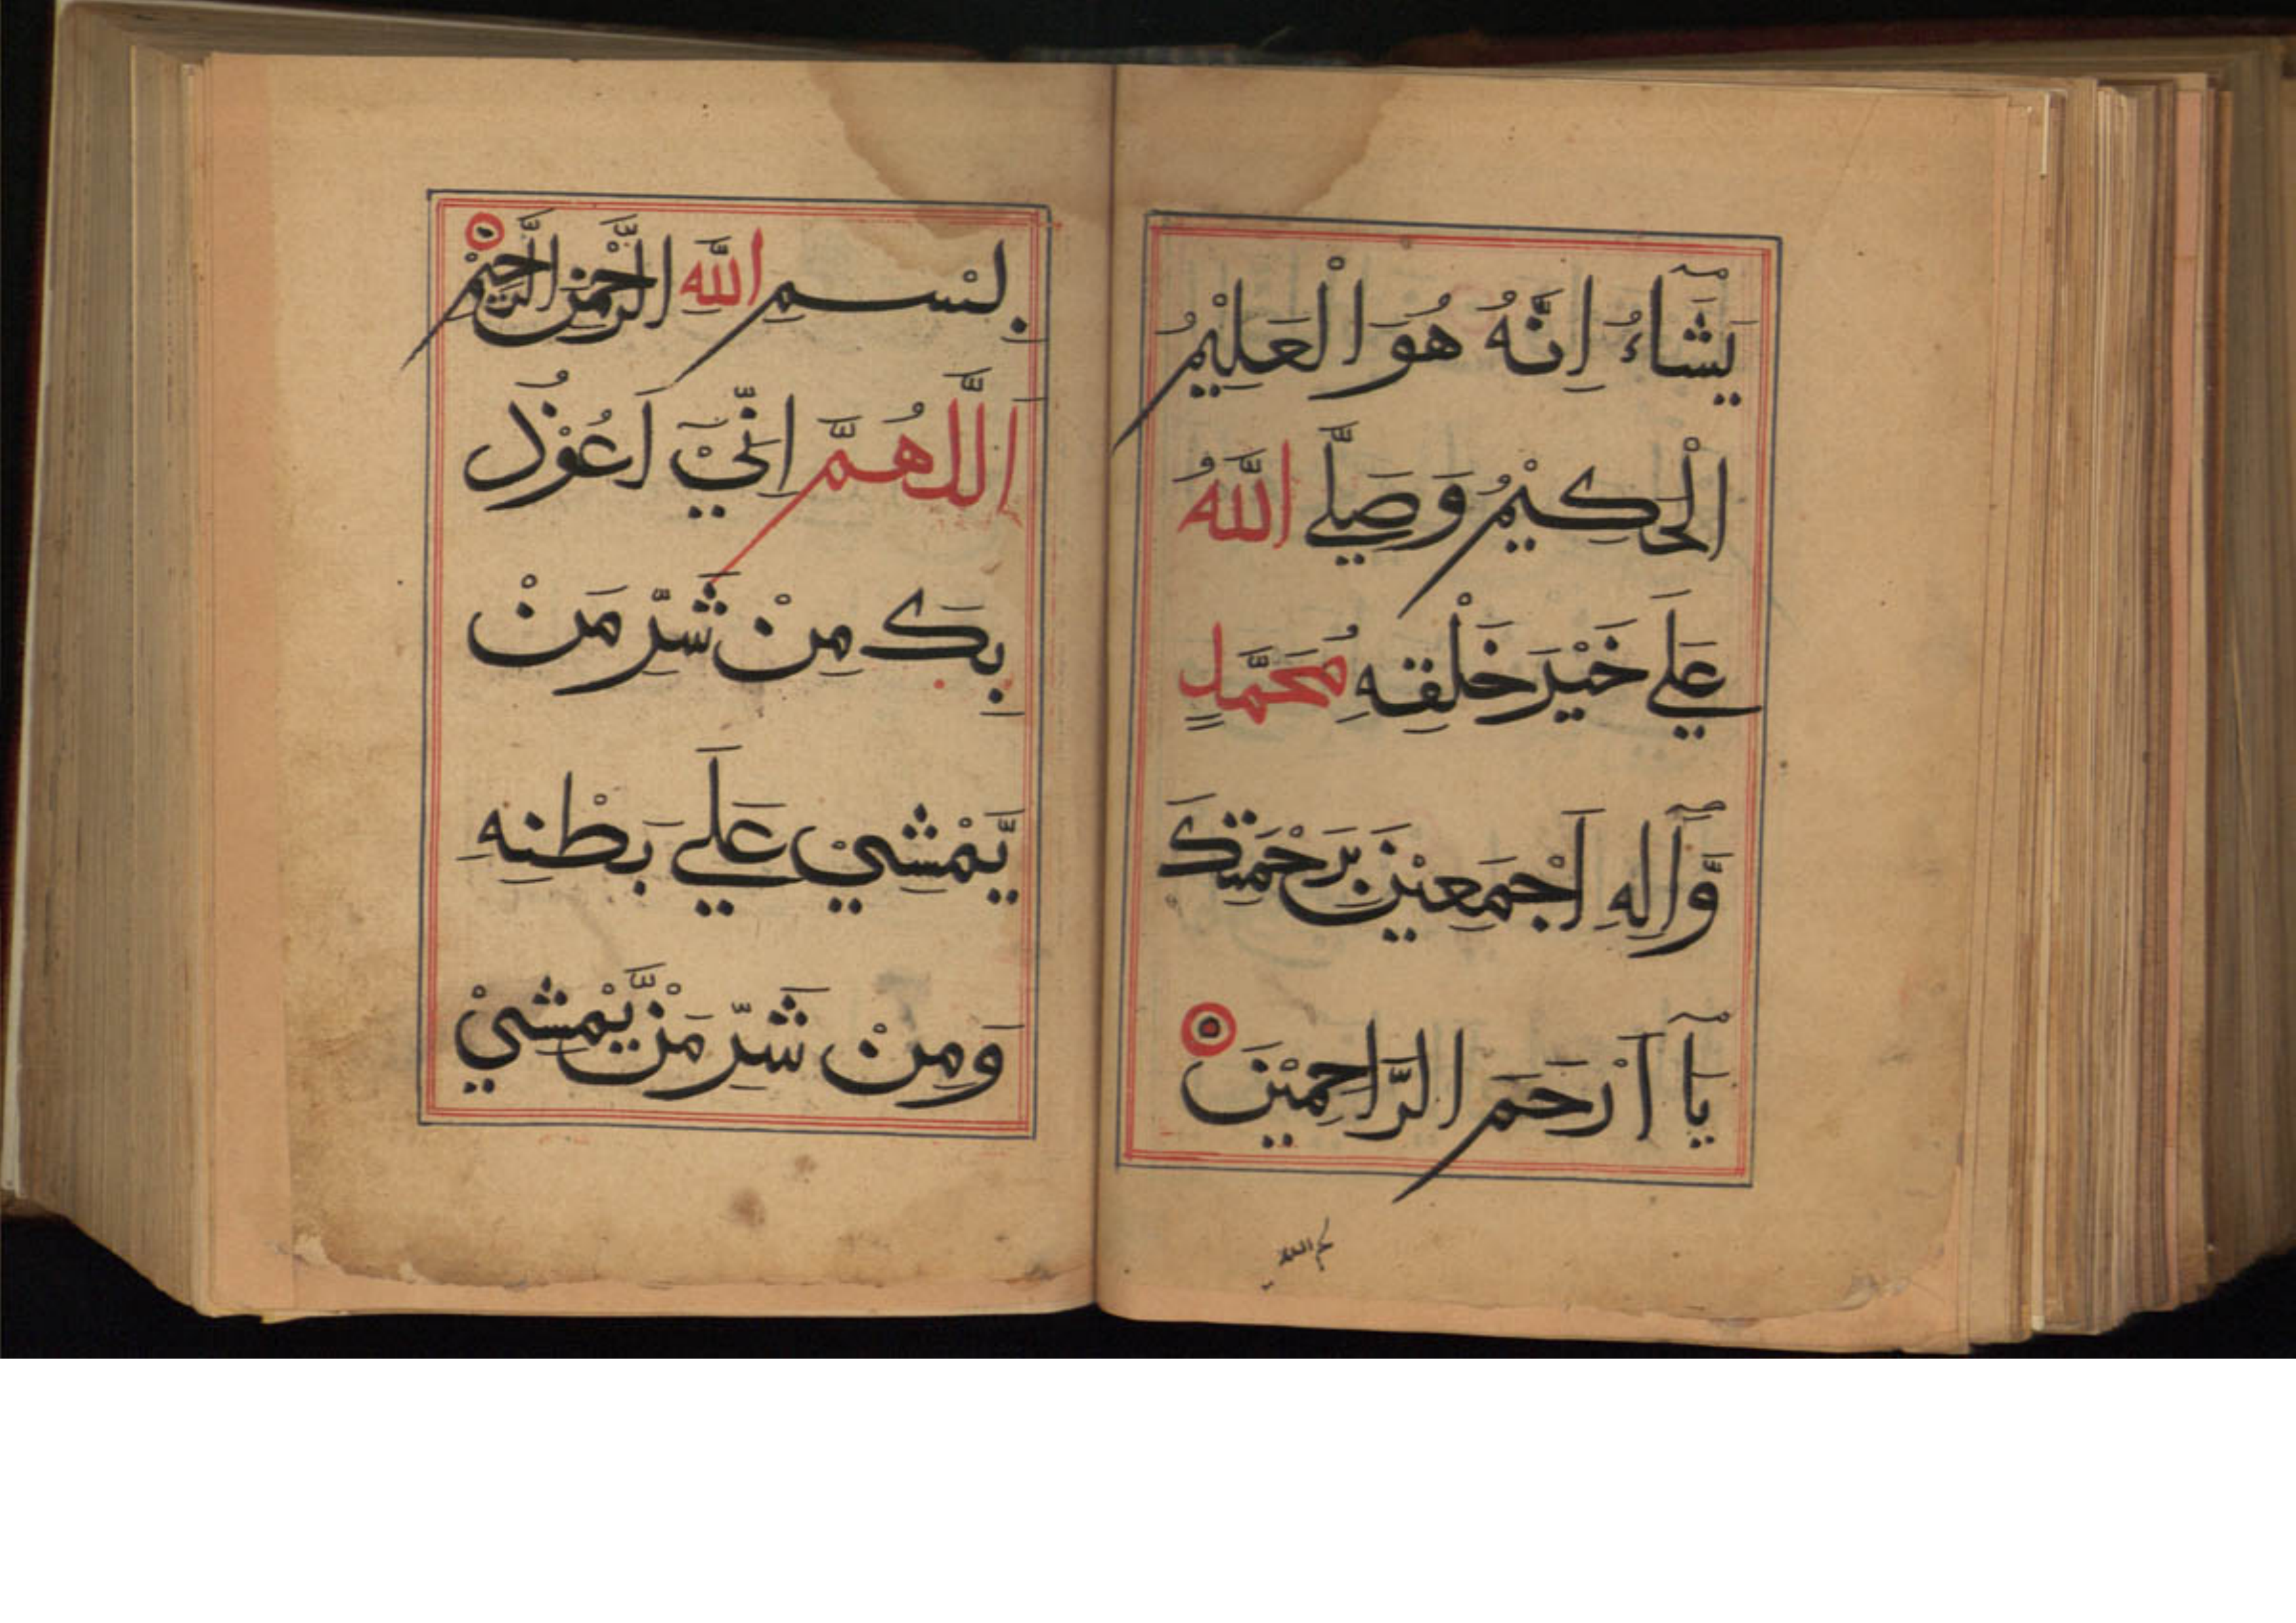 يَّشَآءُ اِنَّهُ هُوَ الْعَلِيْمُ
الْحَكِيْمُ وَصَلَّي اللّٰهُ
عَلٰي خَيْرِ خَلْقِهٖ مُحَمَّدٍ
وَّاٰلِهٖ اَجْمَعِيْنَ بِرَحْمَتِكَ
يَآ اَرْحَمَ الرَّاحِمِيْنَ
بِسْمِ اللّٰهِ الرَّحْمٰنِ الرَّحِيْمِ
اَللّٰهُمَّ اِنِّيْ اَعُوْذُ
بِكَ مِنْ شَرِّ مَنْ
يَّمْشِيْ عَلٰي بَطْنِهٖ
وَمِنْ شَرِّ مَنْ يَّمْشِيْ